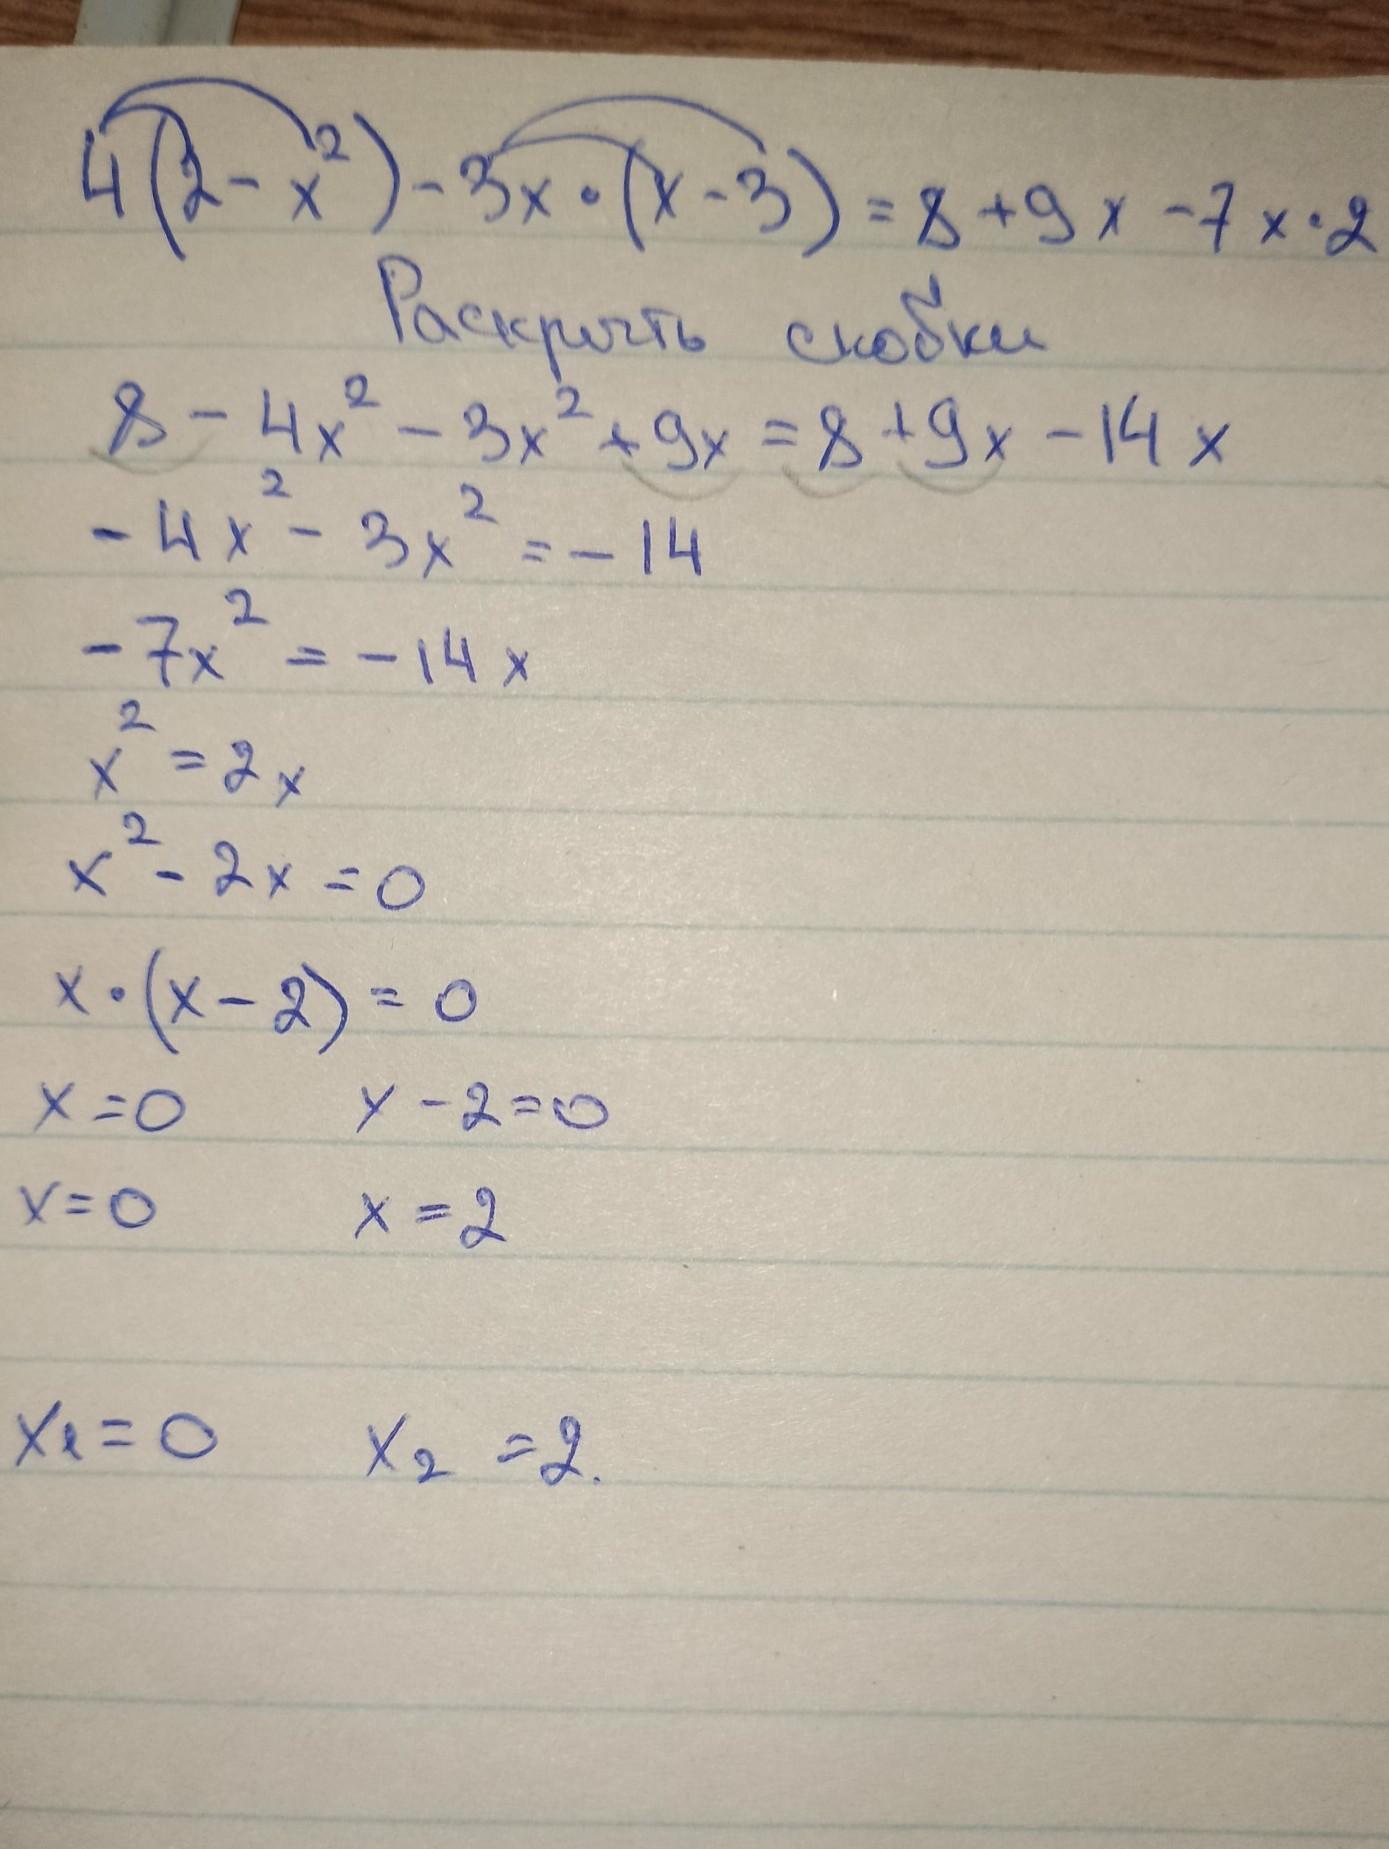 4(2-x²)-3x·(x-3)=8+9x-7x·2
Раскрыть скобки
8-4x²-3x²+9x=8+9x-14x
-4x²-3x²=-14
-7x²=-14x
x²=2x
x²-2x=0
x·(x-2)=0
x=0 x-2=0
x=0 x=2
x₁=0 x₂=2.